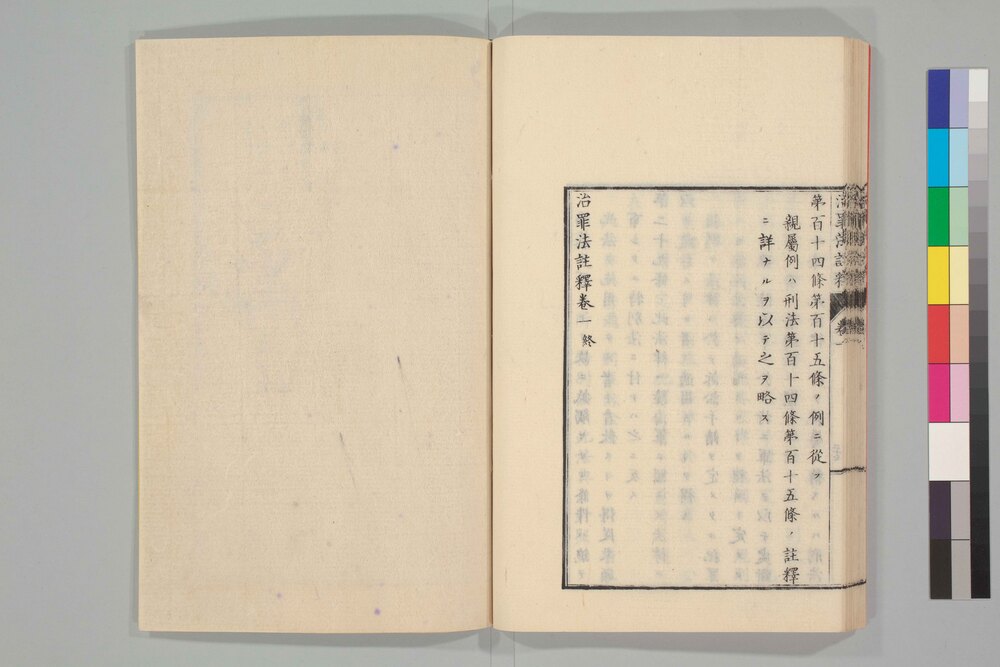 治罪法註釋 卷
第百十四條第百十五條ノ例ニ從フ
親屬例ハ刑法第百十四條第百十五條ノ註釋
ニ詳ナルヲ以テ之ヲ略ス
治罪法註釋卷一終